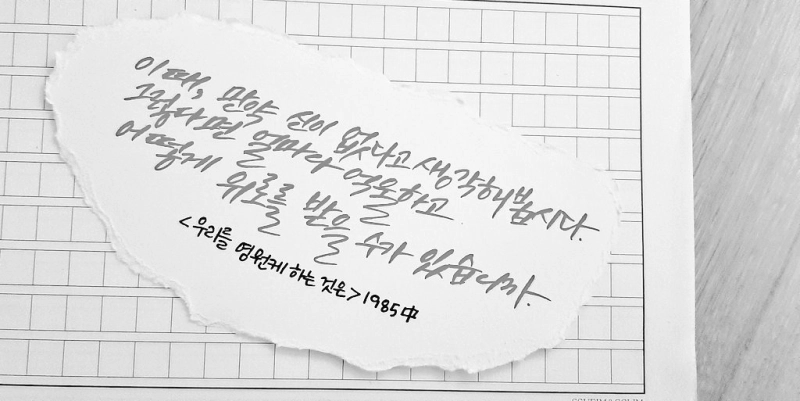 이때, 만약 신이 없다고 생각해봅시다.
그렇다면 얼마나 억울하고
어떻게 위로를 받을 수가 있습니까.
<우리를 영원케 하는 것은> 1985 中